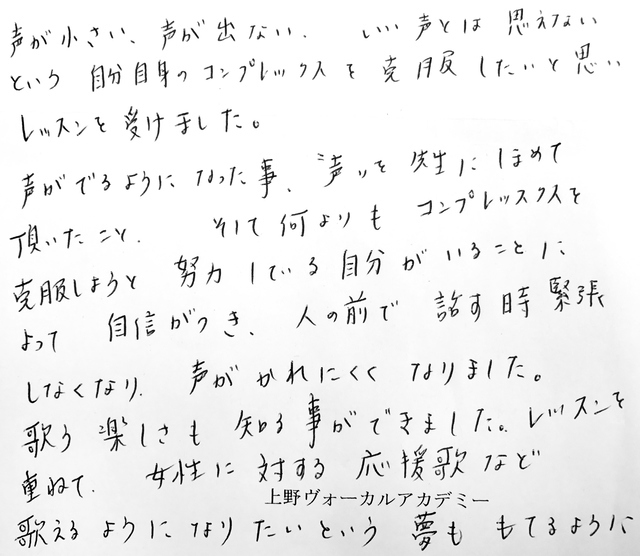 声が小さい、声が出ない、いい声とは思えない
という自分自身のコンプレックスを克服したいと思い
レッスンを受けました。
声がでるようになった事、"声"を先生にほめて
頂いたこと、そして何よりもコンプレッスクスを
克服しようと努力している自分がいることに
よって自信がつき、人の前で話す時緊張
しなくなり、声がかれにくくなりました。
歌う楽しさも知る事ができました。レッスンを
重ねて、女性に対する応援歌など
上野ヴォーカルアカデミー
歌えるようになりたいという夢ももてるように